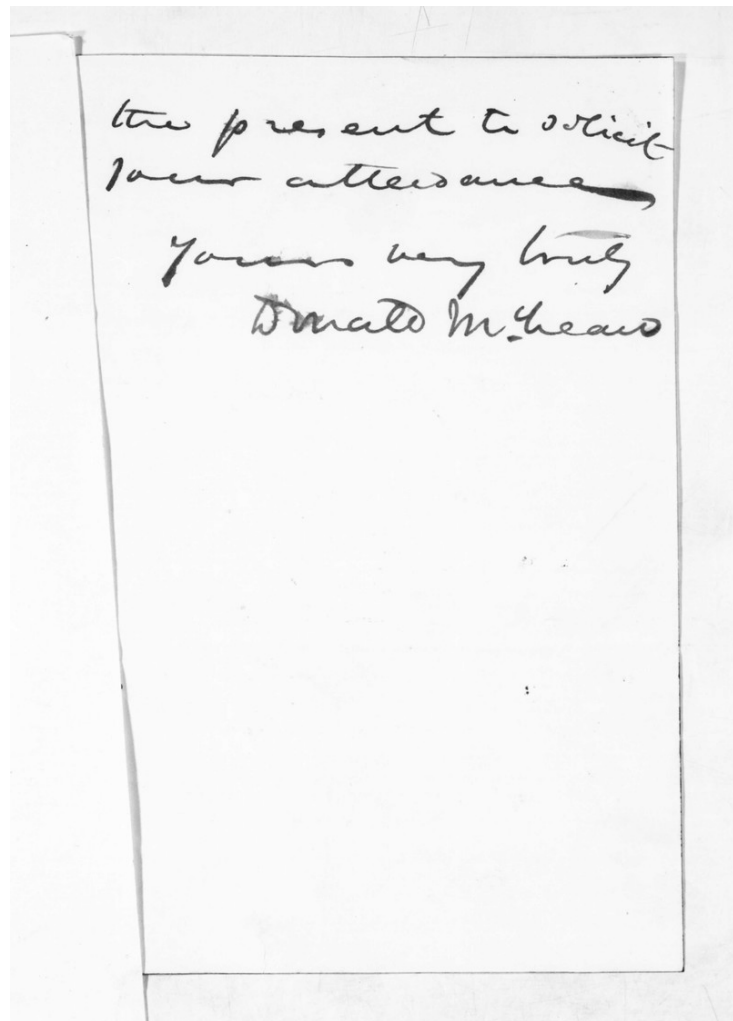 the present to solicit
your attendance
Yours very truly
Donald McLean